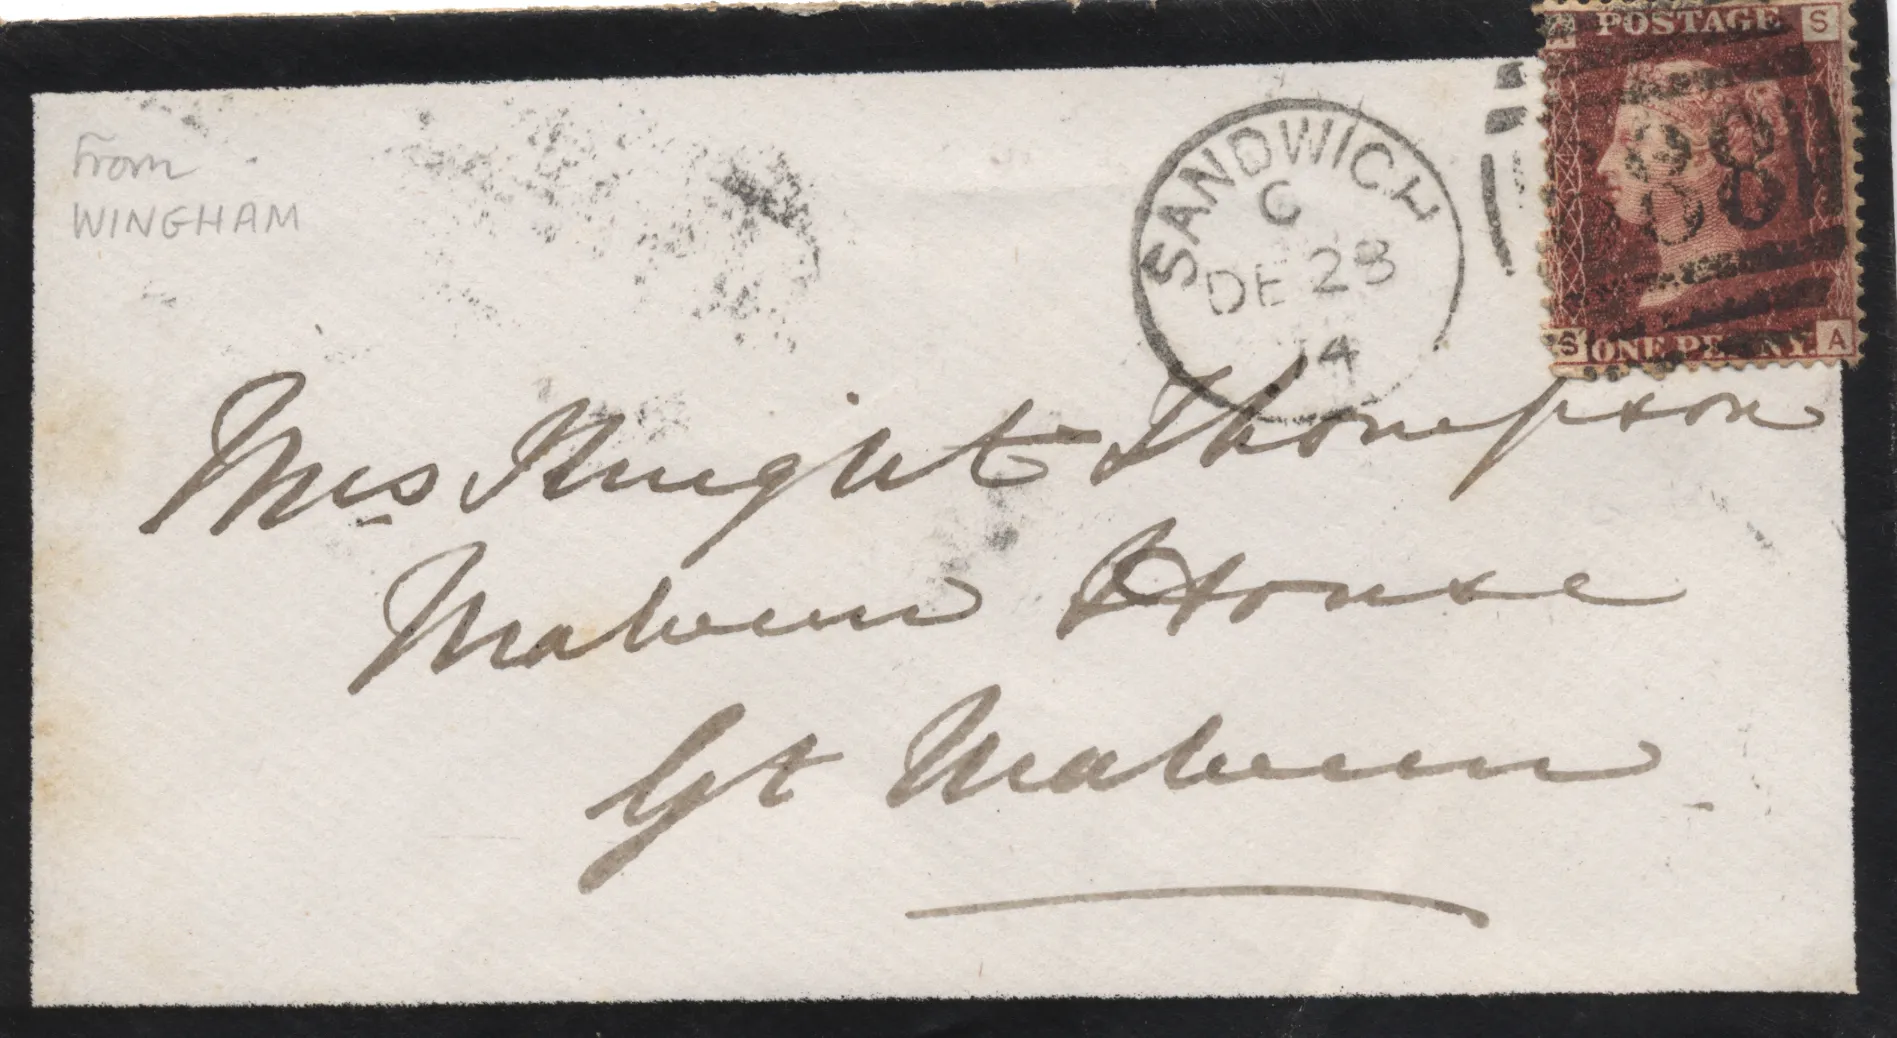 From
WINGHAM
SANDWICH
C
DE 23
74
POSTAGE
S
S
ONE PENNY
A
Mrs Knight Thompson
Malvern House
Gt Malvern